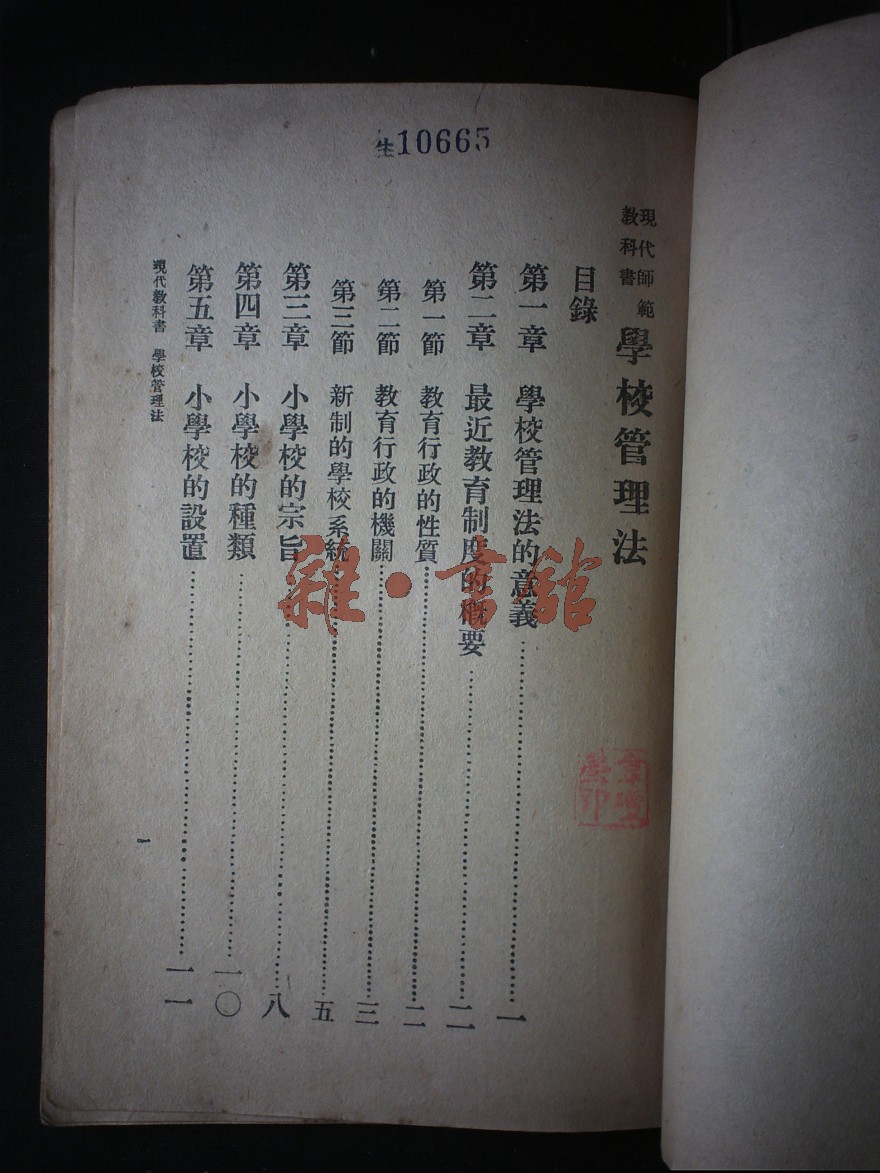 生10665
現代師範
教科書
學校管理法
目錄
第一章 學校管理法的意義……一
第二章 最近教育制度的概要……二
第一節 教育行政的性質……二
第二節 教育行政的機關……三
第三節 新制的學校系統……五
第三章 小學校的宗旨……八
第四章 小學校的種類……一〇
第五章 小學校的設置……一一
現代教科書 學校管理法
一
雜·書館